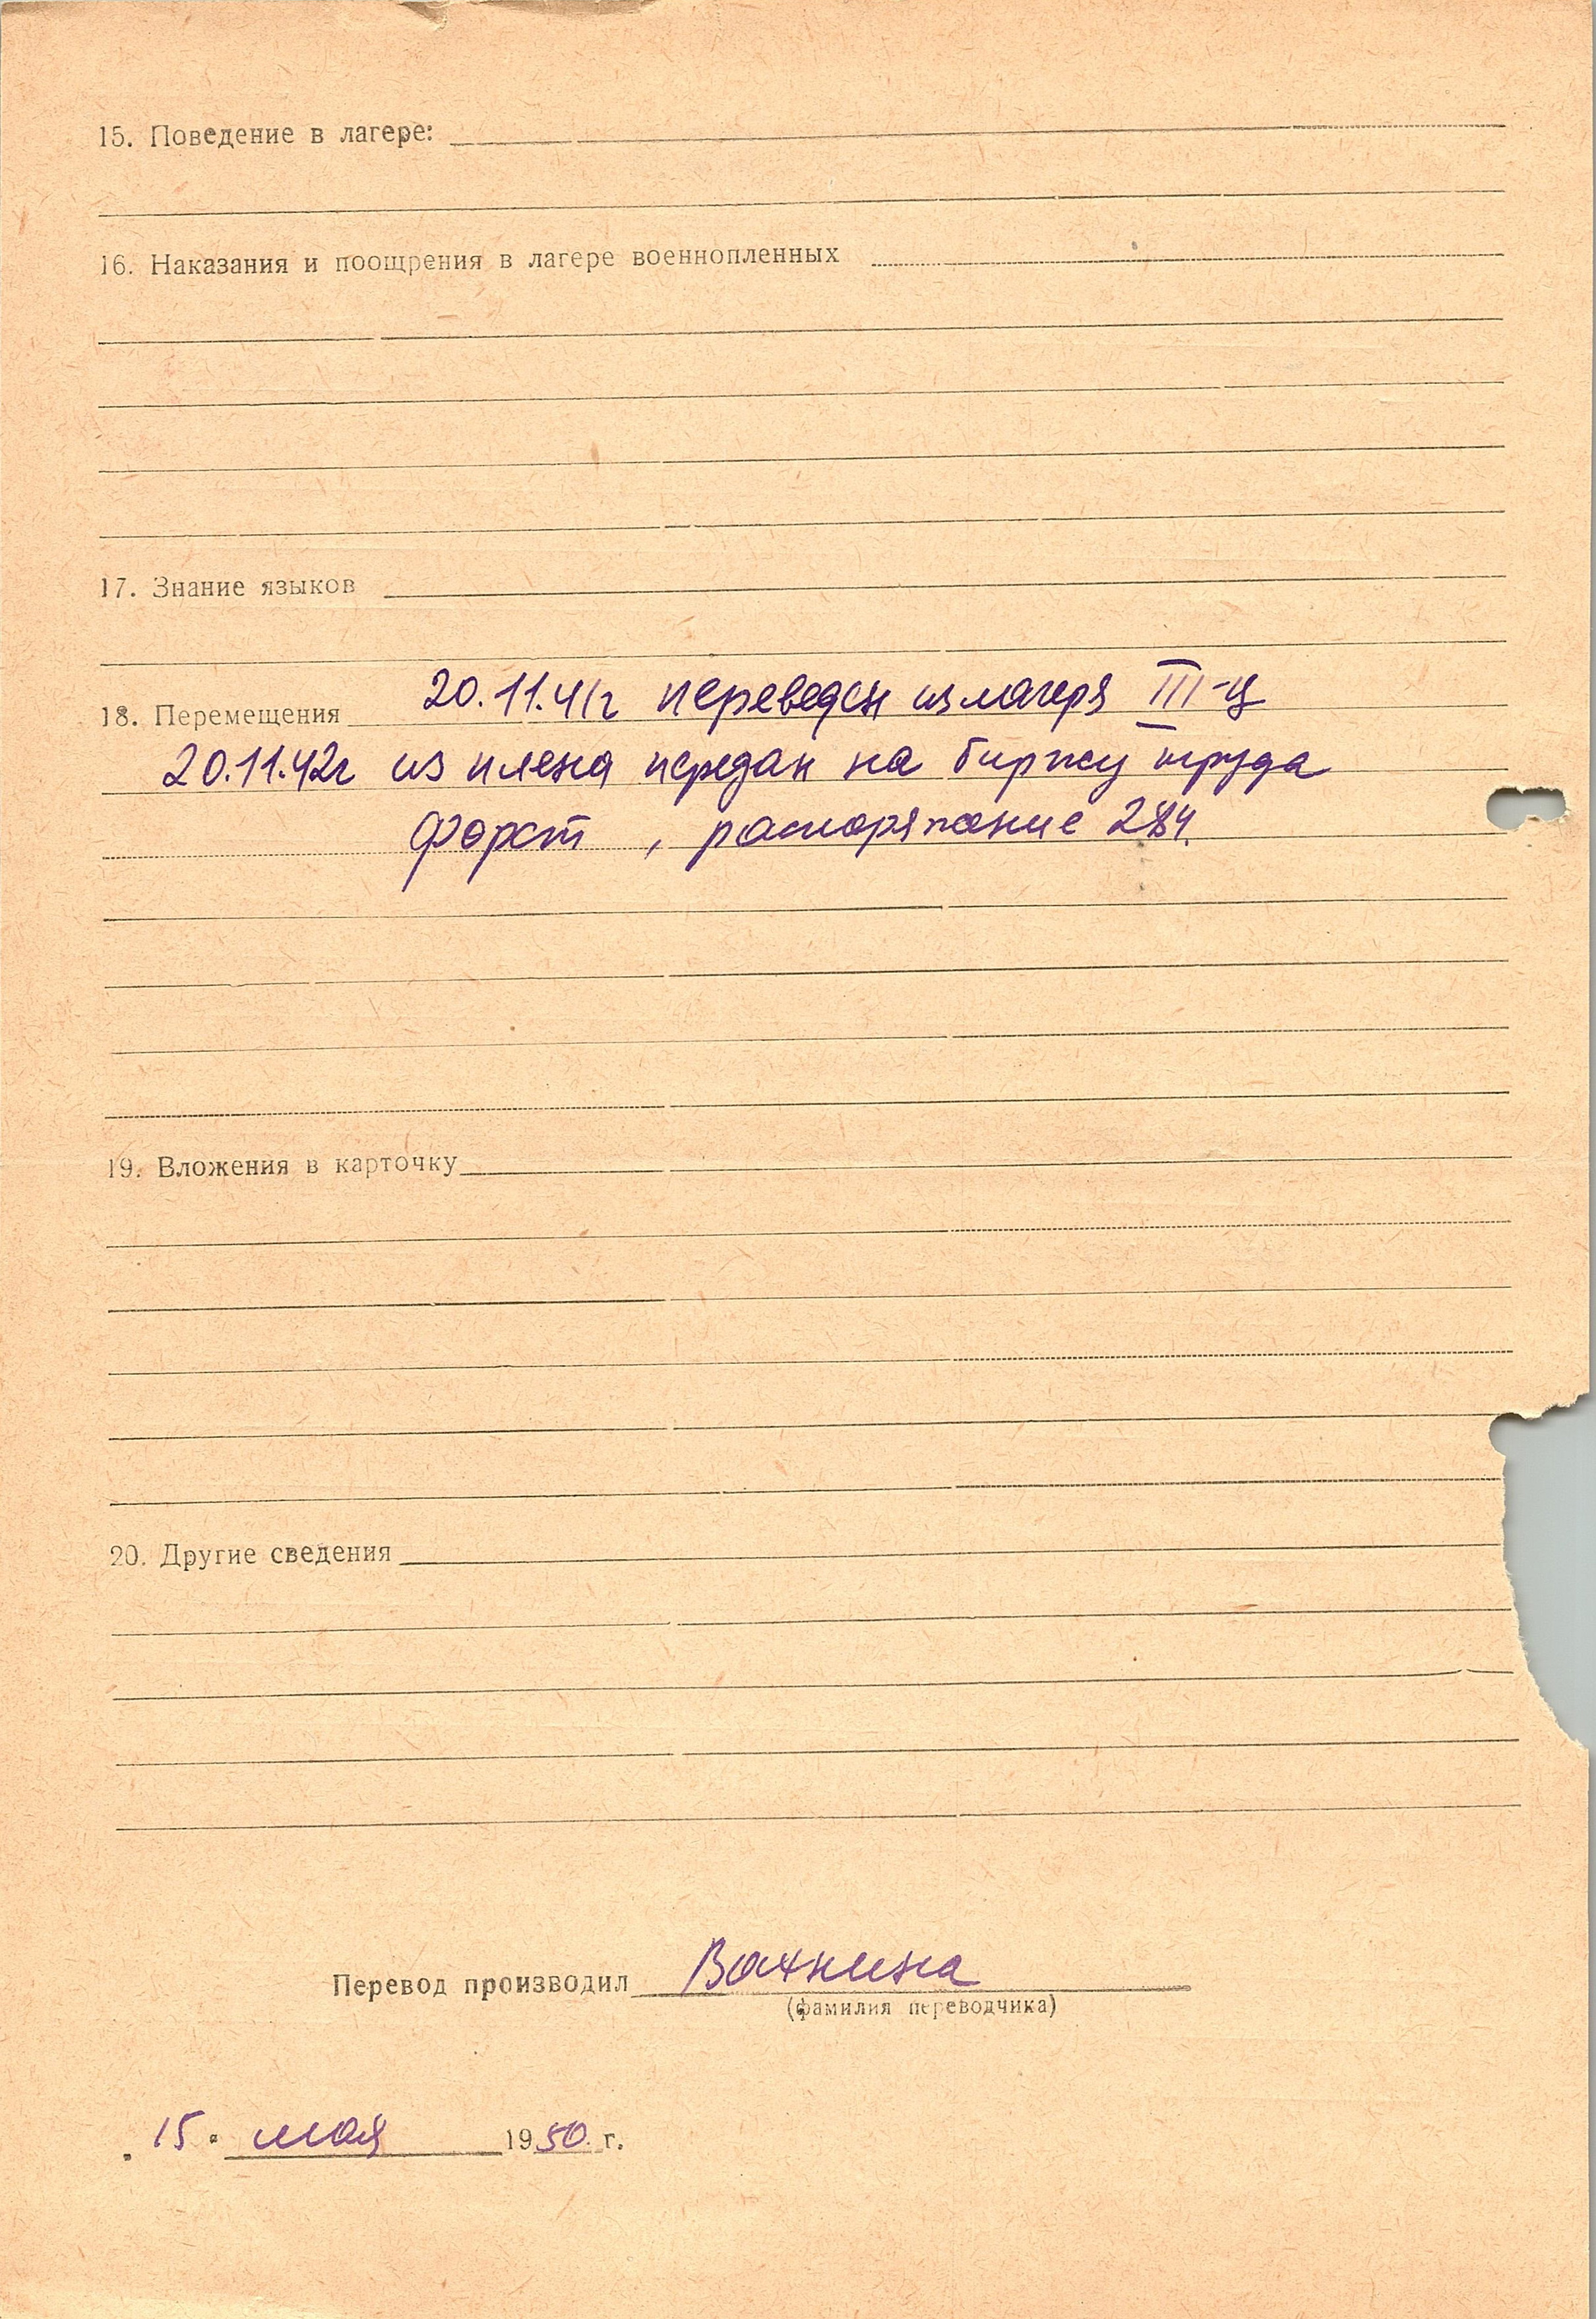 15. Поведение в лагере:
16. Наказания и поощрения в лагере военнопленных
17. Знание языков
18. Перемещения 20.11.41г переведен из лагеря III-ц
20.11.42г из плена передан на биржу труда
Форст, распоряжение 284.
19. Вложения в карточку
20. Другие сведения
Перевод производил Вахнина
(фамилия переводчика)
„15" мая 1950 г.